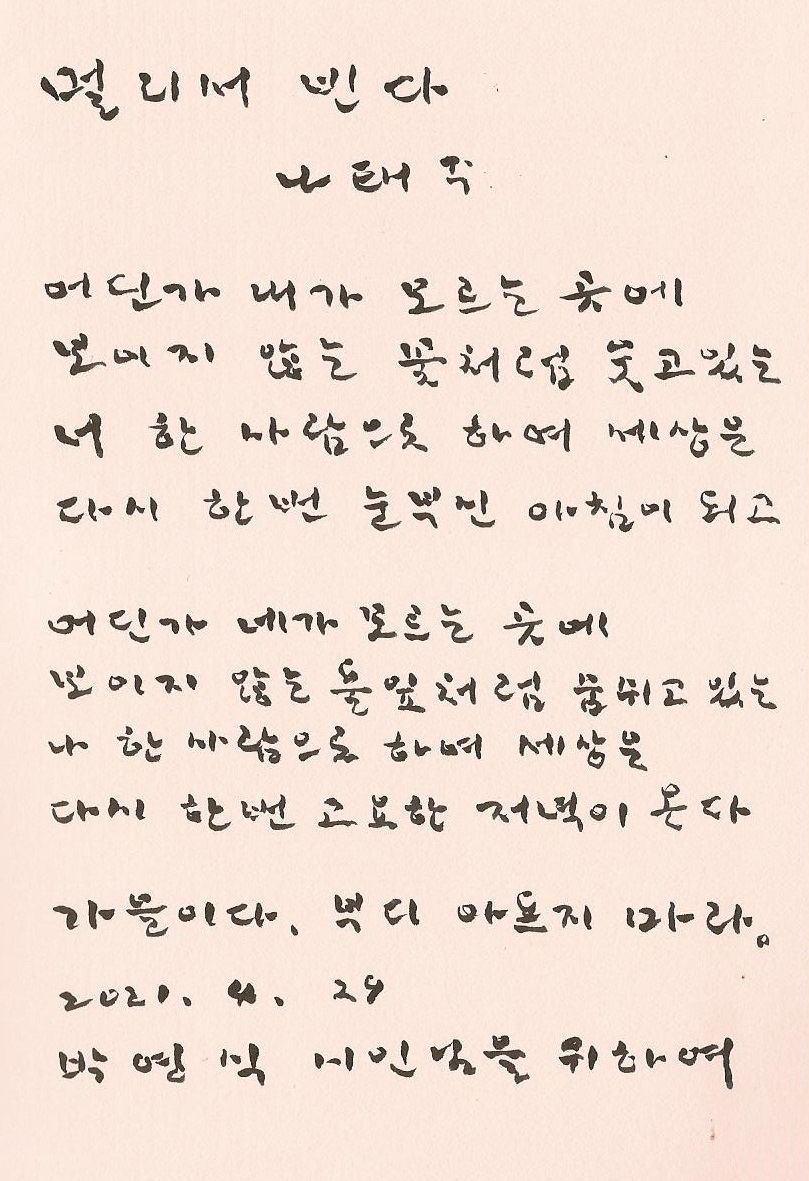 멀리서 빈다
나태주
어딘가 내가 모르는 곳에
보이지 않는 꽃처럼 웃고 있는
너 한 사람으로 하여 세상은
다시 한번 눈부신 아침이 되고
어딘가 네가 모르는 곳에
보이지 않는 풀잎처럼 숨쉬고 있는
나 한 사람으로 하여 세상은
다시 한번 고요한 저녁이 온다
가을이다, 부디 아프지 마라.
2021. 4. 29
박영식 시인님을 위하여